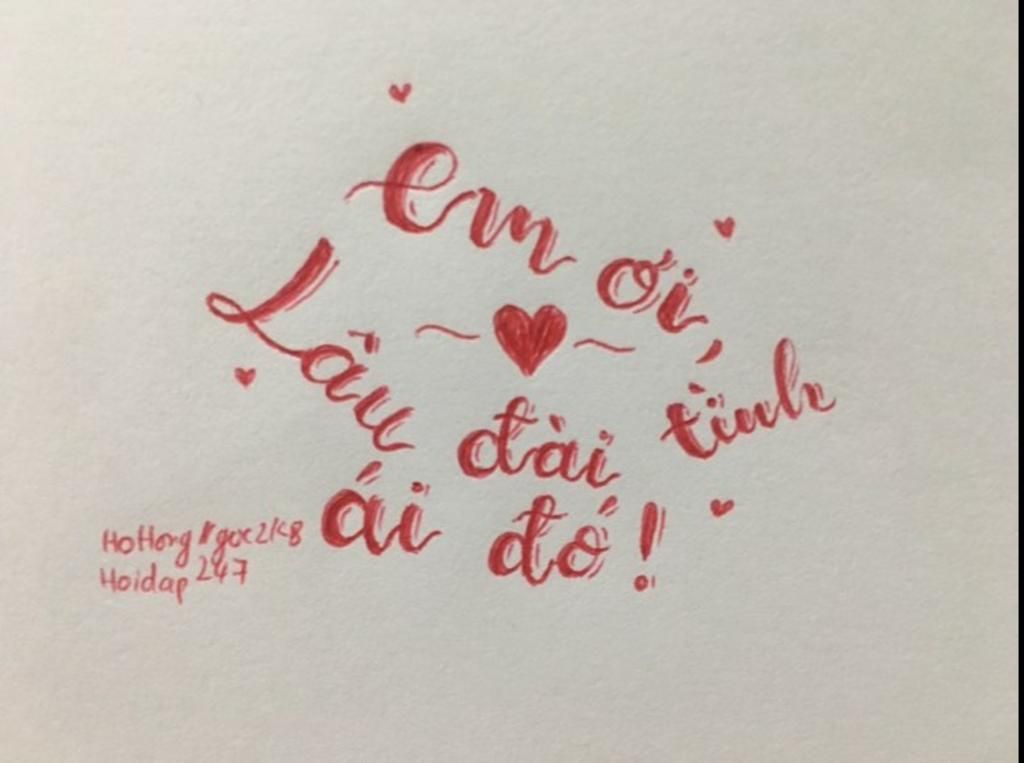 em ơi,
Lâu đài tình
ái đó!
HoHongNgoc2k8
Hoidap247